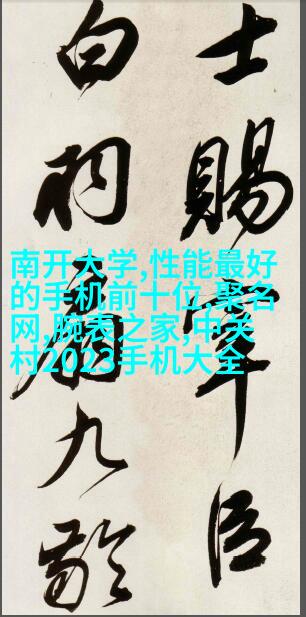 士賜宰臣
白羽扇九齡
南开大学,性能最好
的手机前十位,聚名
网,腕表之家,中关
村2023手机大全